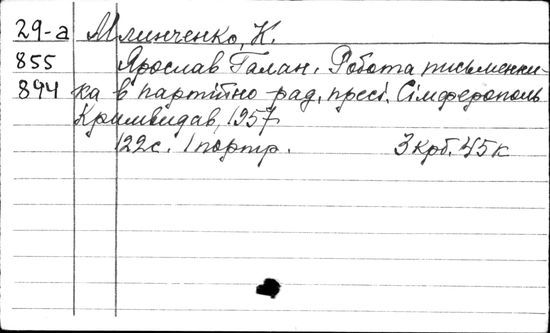 29-а Млинченко, К.
855 Ярослав Галан. Робота письменни-
894 ка в партійно рад. пресі. Сімферополь
Кримвидав, 1957
122с. 1 портр. 3 крб. 45к